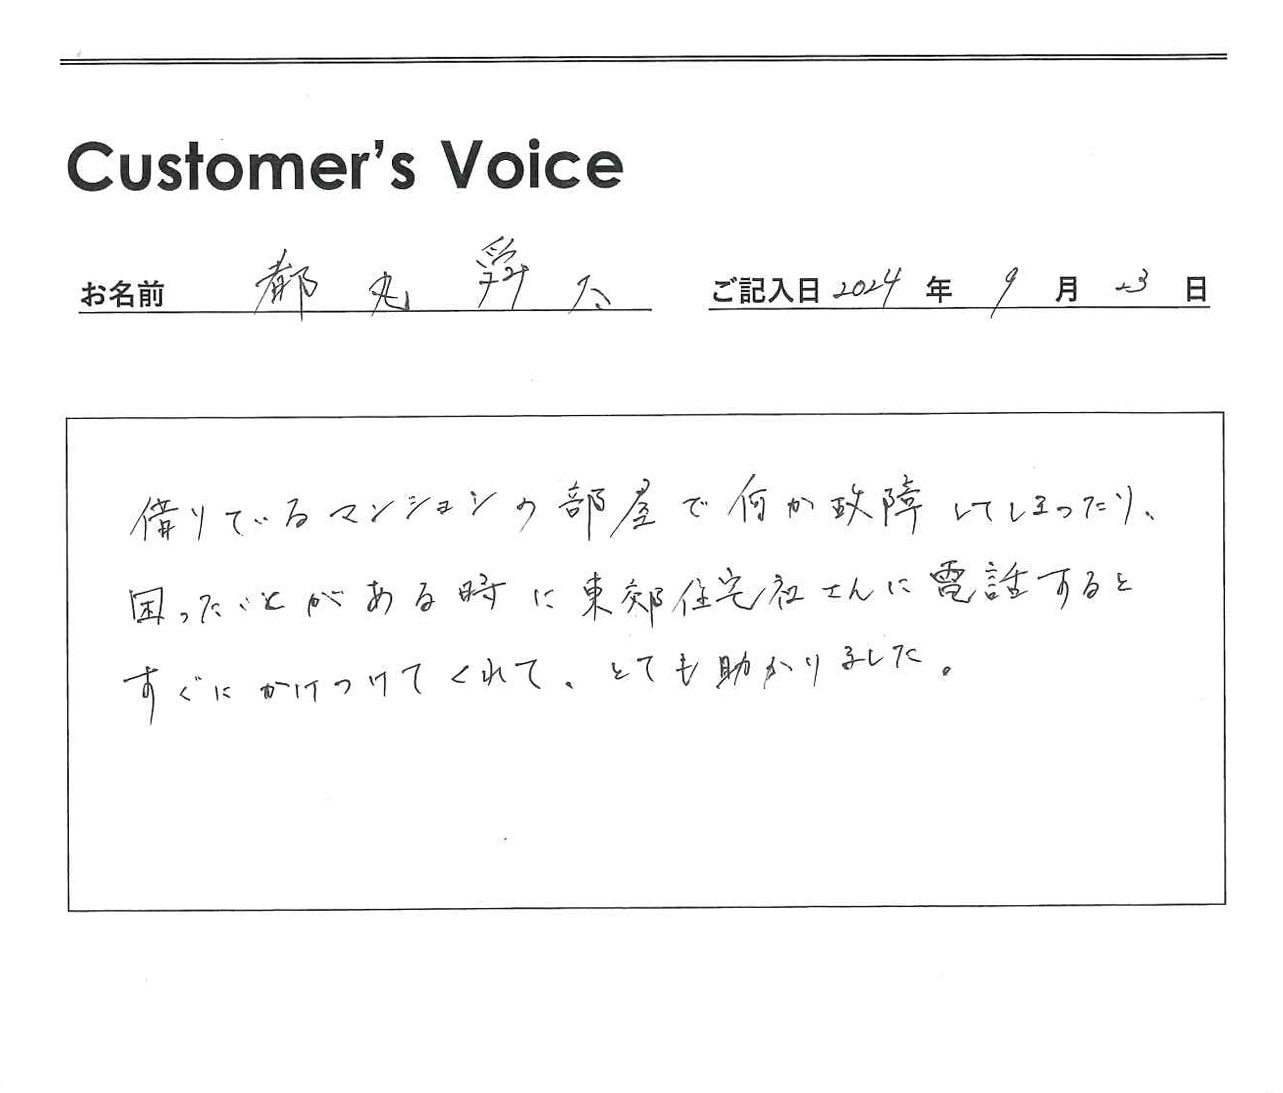 Customer's Voice
お名前 都丸 舜太 ご記入日 2024 年 9 月 23 日
借りているマンションの部屋で何か故障してしまったり、
困ったことがある時に東郊住宅社さんに電話すると
すぐにかけつけてくれて、とても助かりました。